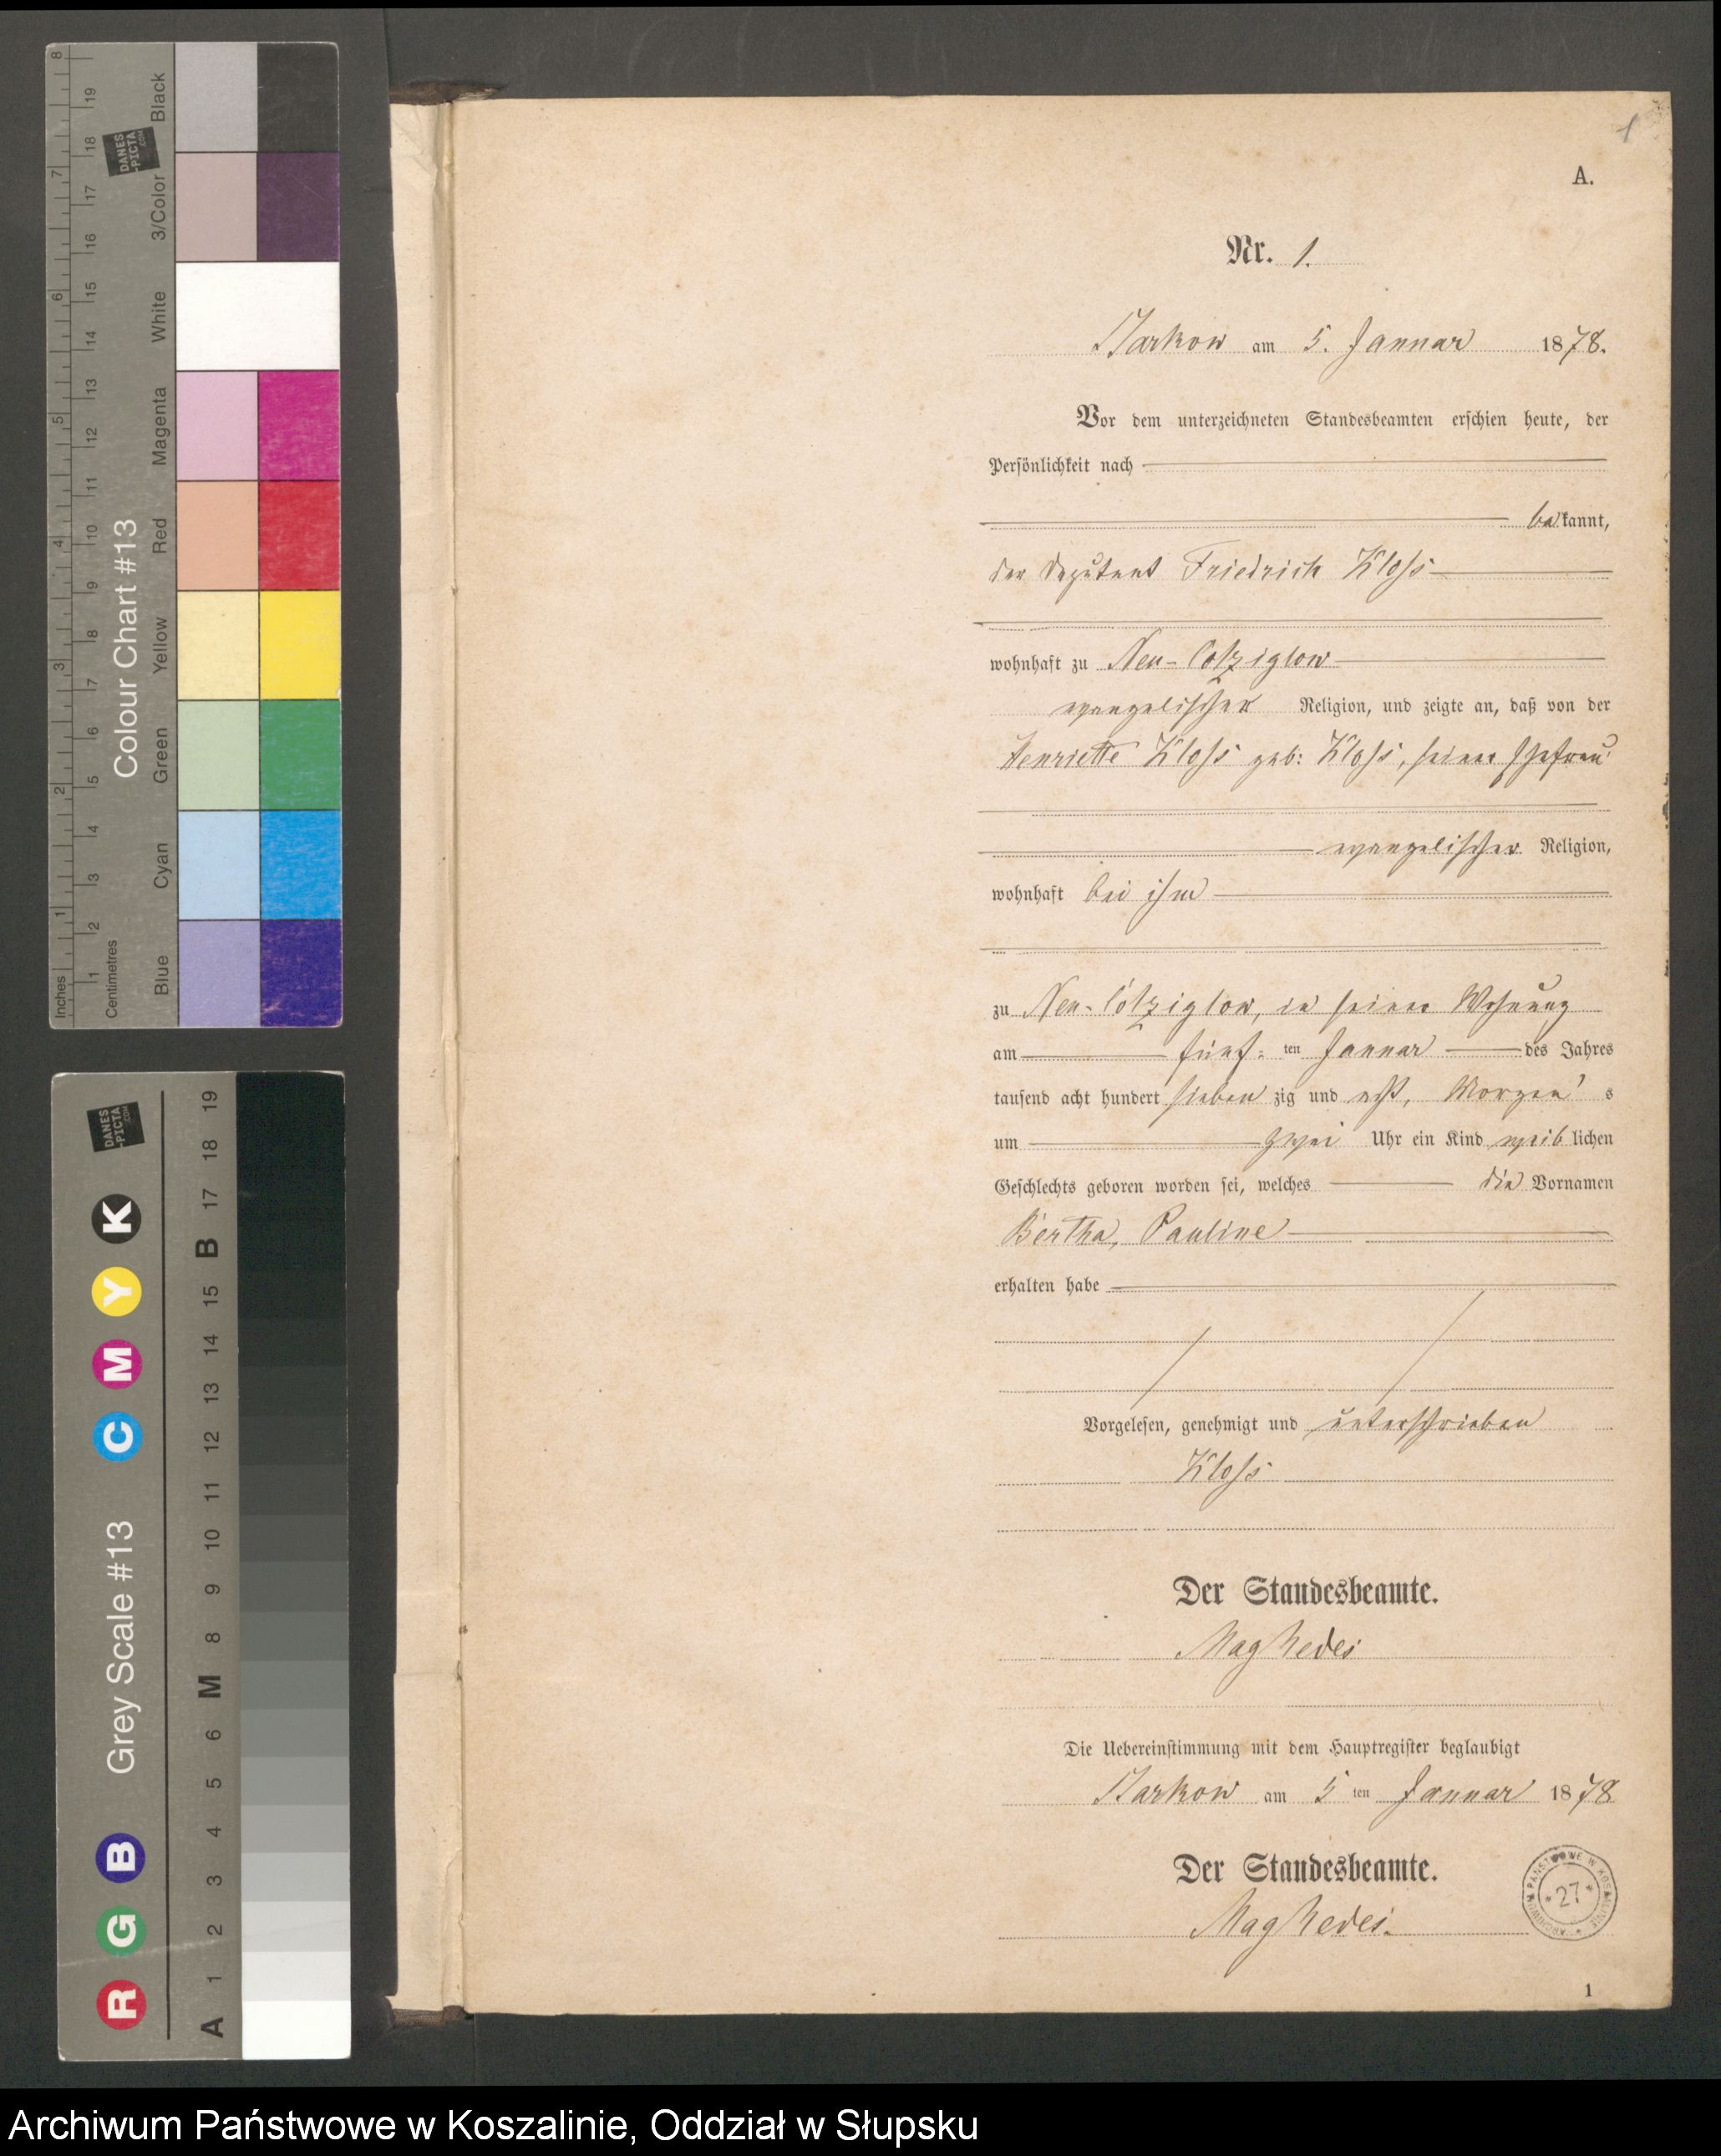 1
A.
Nr. 1.
Markow am 5. Januar 1878.
Vor dem unterzeichneten Standesbeamten erschien heute, der
Persönlichkeit nach
bekannt,
der Deputant Friedrich Kloss
wohnhaft zu Neu-Lötziglow
evangelischer Religion, und zeigte an, daß von der
Henriette Kloss geb: Kloss, seiner Ehefrau
evangelischer Religion,
wohnhaft bei ihm
zu Neu-Lötziglow, in seiner Wohnung
am fünf- ten Januar des Jahres
tausend acht hundert siebenzig und acht, Morgens
um zwei Uhr ein Kind weiblichen
Geschlechts geboren worden sei, welches die Vornamen
Bertha, Pauline
erhalten habe
Vorgelesen, genehmigt und unterschrieben
Kloss
Der Standesbeamte.
Die Uebereinstimmung mit dem Hauptregister beglaubigt
am 5 ten Januar 1878
Der Standesbeamte.
ARCHIWUM PAŃSTWOWE W KOSZALINIE
* 27 *
1
Colour Chart #13
Inches 1 2 3 4 5 6 7 8
Centimetres 1 2 3 4 5 6 7 8 9 10 11 12 13 14 15 16 17 18 19
Blue Cyan Green Yellow Red Magenta White 3/Color Black
DANES
-PICTA
.COM
Grey Scale #13
R G B C M Y K
A 1 2 3 4 5 6 M 8 9 10 11 12 13 14 15 B 17 18 19
DANES
-PICTA
.COM
Archiwum Państwowe w Koszalinie, Oddział w Słupsku